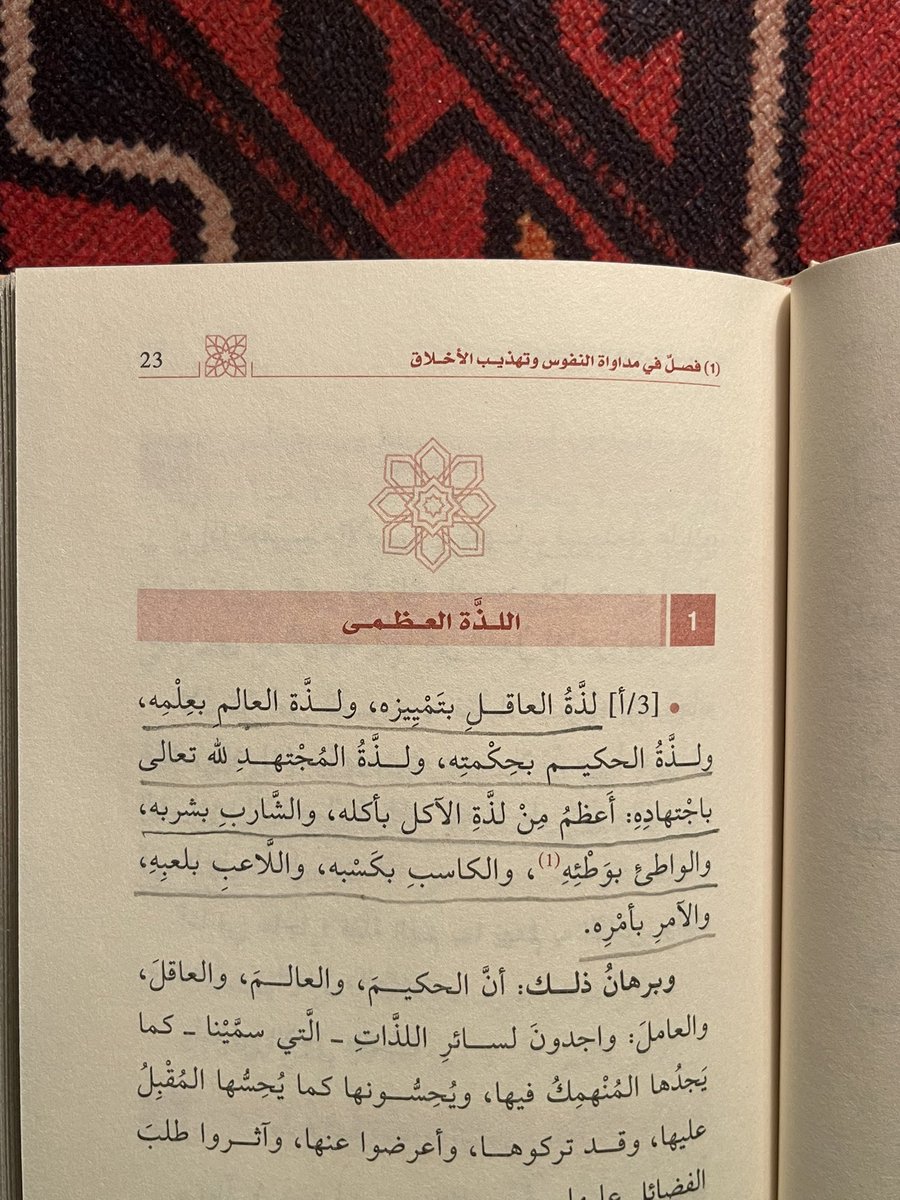 (1) فصلٌ في مداواة النفوس وتهذيب الأخلاق 23
1 اللذَّة العظمى
• [3/أ] لذَّةُ العاقلِ بتَمْيِيزه، ولذَّة العالم بعِلْمِه،
ولذَّةُ الحكيم بحِكْمتِه، ولذَّةُ المُجْتهدِ لله تعالى
باجْتهادِهِ: أَعظمُ مِنْ لذَّةِ الآكل بأكله، والشَّاربِ بشربه،
والواطئِ بوَطْئِهِ(1)، والكاسبِ بكَسْبه، واللَّاعبِ بلعبِهِ،
والآمرِ بأمْرِه.
وبرهانُ ذلك: أنَّ الحكيمَ، والعالمَ، والعاقلَ،
والعاملَ: واجدونَ لسائرِ اللذَّاتِ - الَّتي سمَّيْنا - كما
يَجدُها المُنْهمِكُ فيها، ويُحِسُّونها كما يُحِسُّها المُقْبِلُ
عليها، وقد تركوها، وأعرضوا عنها، وآثروا طلبَ
الفضائل عليها